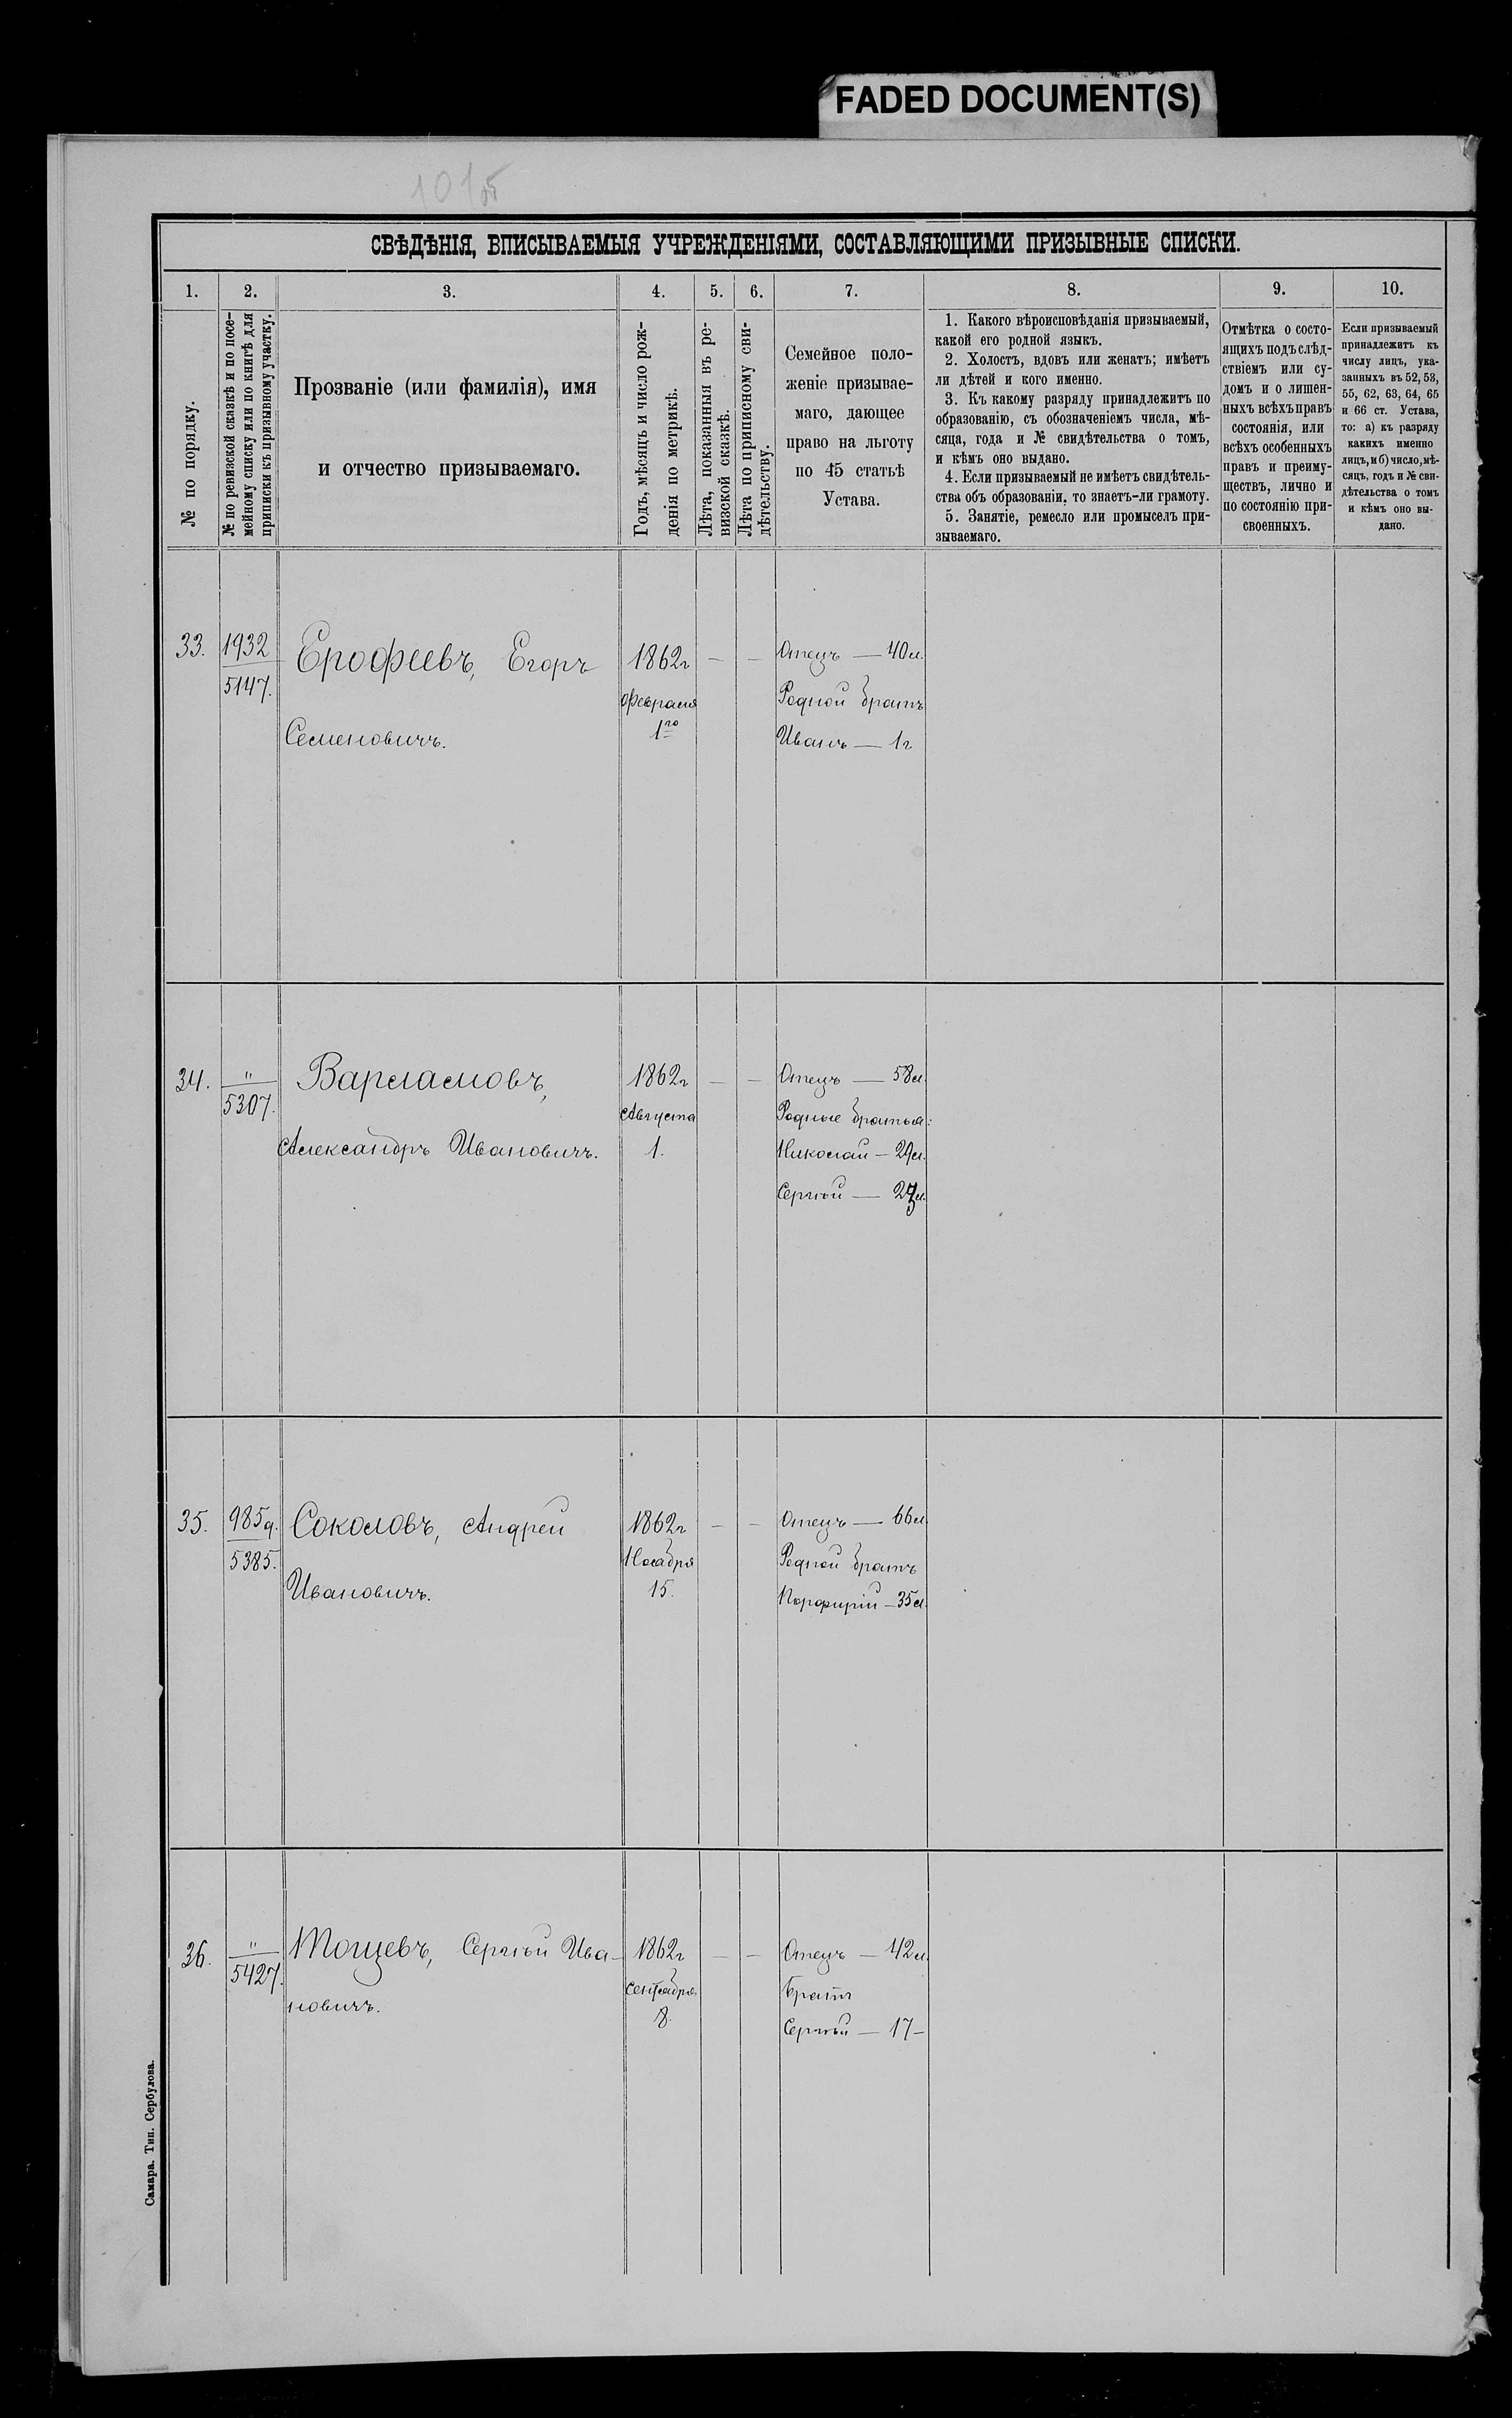 FADED DOCUMENT(S)
СВѢДѢНІЯ, ВПИСЫВАЕМЫЯ УЧРЕЖДЕНІЯМИ, СОСТАВЛЯЮЩИМИ ПРИЗЫВНЫЕ СПИСКИ.
1.
2.
3.
4.
5.
6.
7.
8.
9.
10.
№ по порядку.
№ по ревизской сказкѣ и по посе-
мейному списку или по книгѣ для
приписки къ призывному участку.
Прозваніе (или фамилія), имя
и отчество призываемаго.
Годъ, мѣсяцъ и число рож-
денія по метрикѣ.
Лѣта, показанныя въ ре-
визской сказкѣ.
Лѣта по приписному сви-
дѣтельству.
Семейное поло-
женіе призывае-
маго, дающее
право на льготу
по 45 статьѣ
Устава.
1. Какого вѣроисповѣданія призываемый,
какой его родной языкъ.
2. Холостъ, вдовъ или женатъ; имѣетъ
ли дѣтей и кого именно.
3. Къ какому разряду принадлежитъ по
образованію, съ обозначеніемъ числа, мѣ-
сяца, года и № свидѣтельства о томъ,
и кѣмъ оно выдано.
4. Если призываемый не имѣетъ свидѣтель-
ства объ образованіи, то знаетъ-ли грамоту.
5. Занятіе, ремесло или промыселъ при-
зываемаго.
Отмѣтка о состо-
ящихъ подъ слѣд-
ствіемъ или су-
домъ и о лишен-
ныхъ всѣхъ правъ
состоянія, или
всѣхъ особенныхъ
правъ и преиму-
ществъ, лично и
по состоянію при-
своенныхъ.
Если призываемый
принадлежитъ къ
числу лицъ, ука-
занныхъ въ 52, 53,
55, 62, 63, 64, 65
и 66 ст. Устава,
то: а) къ разряду
какихъ именно
лицъ, и б) число, мѣ-
сяцъ, годъ и № сви-
дѣтельства о томъ
и кѣмъ оно вы-
дано.
33.
1932
5147.
Ерофеевъ, Егоръ
Семеновичъ.
1862г
Февраля
1го
—
—
Отецъ — 40л.
Родной братъ
Иванъ — 1г
34.
"
5307.
Варламовъ,
Александръ Ивановичъ.
1862г
Августа
1.
—
—
Отецъ — 58л.
Родные братья:
Николай — 29л.
Сергѣй —
35.
985д.
5385.
Соколовъ, Андрей
Ивановичъ.
1862г
Ноября
15.
—
—
Отецъ — 66л
Родной братъ
Порфирій — 35л.
36.
"
5427.
Тощевъ, Сергѣй Ива-
новичъ.
1862г
Сентября
8.
—
—
Отецъ — 42л.
Братъ
Сергѣй — 17 —
Самара. Тип. Сербулова.